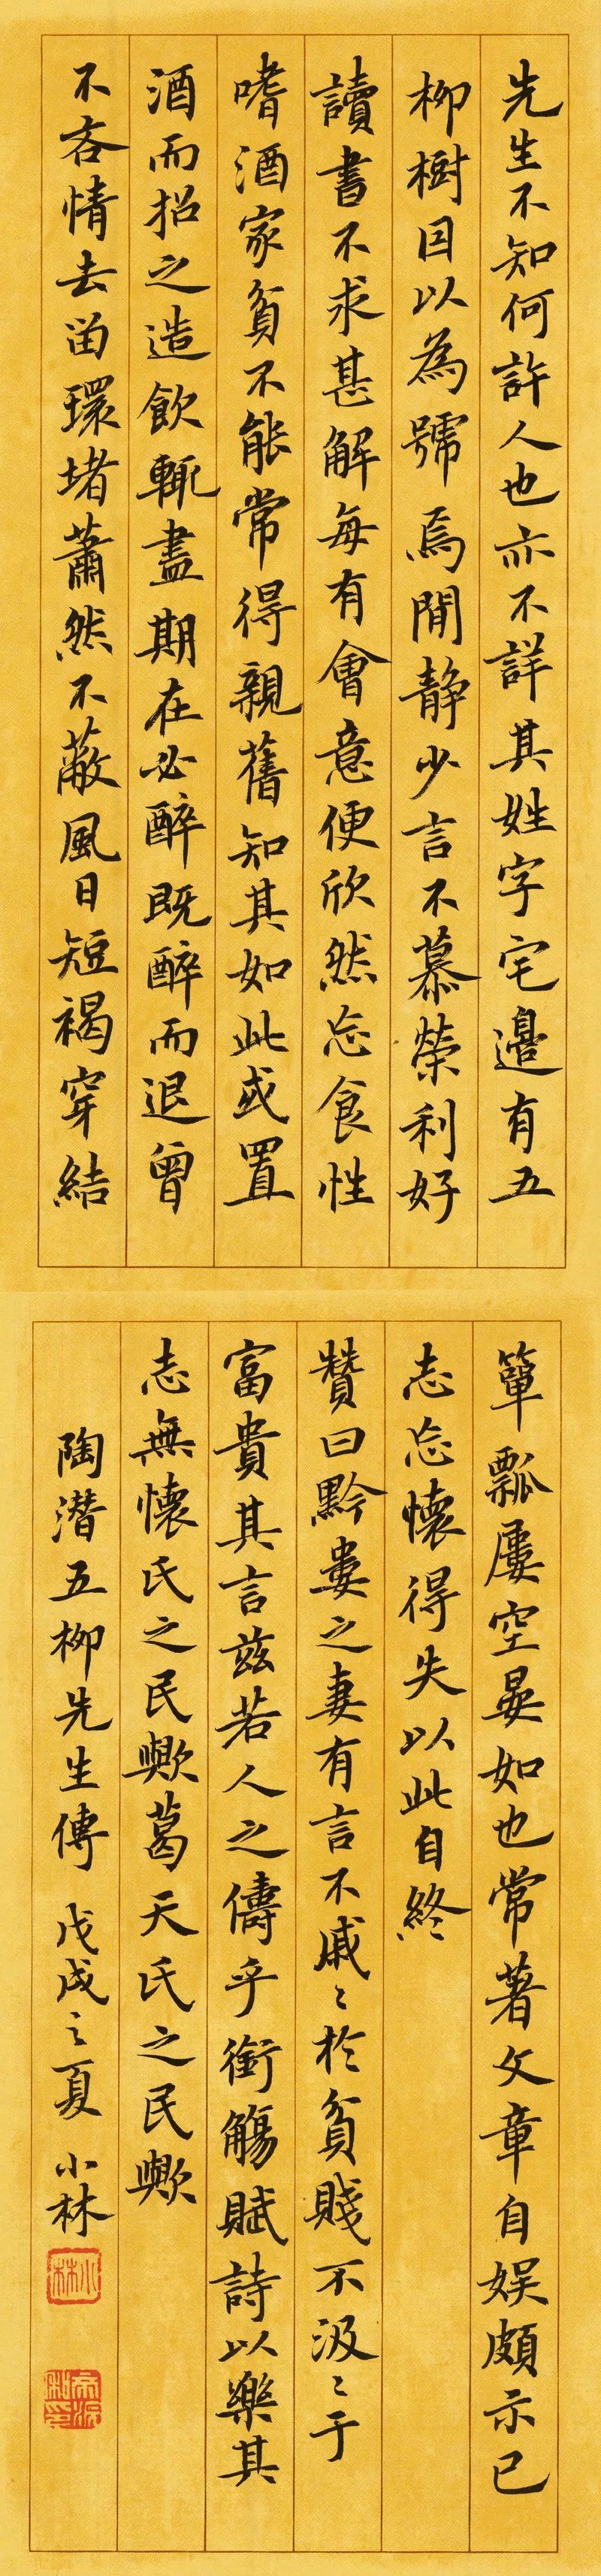 先生不知何許人也亦不詳其姓字宅邉有五
柳樹因以為號焉閒静少言不慕榮利好
讀書不求甚解每有會意便欣然忘食性
嗜酒家貧不能常得親舊知其如此或置
酒而招之造飲輒盡期在必醉既醉而退曾
不吝情去留環堵蕭然不蔽風日短褐穿結
簞瓢屢空晏如也常著文章自娱頗示己
志忘懷得失以此自終
贊曰黔婁之妻有言不戚〻於貧賤不汲〻于
富貴其言兹若人之儔乎銜觴賦詩以樂其
志無懷氏之民歟葛天氏之民歟
陶潛五柳先生傳 戊戌之夏 小林
小林